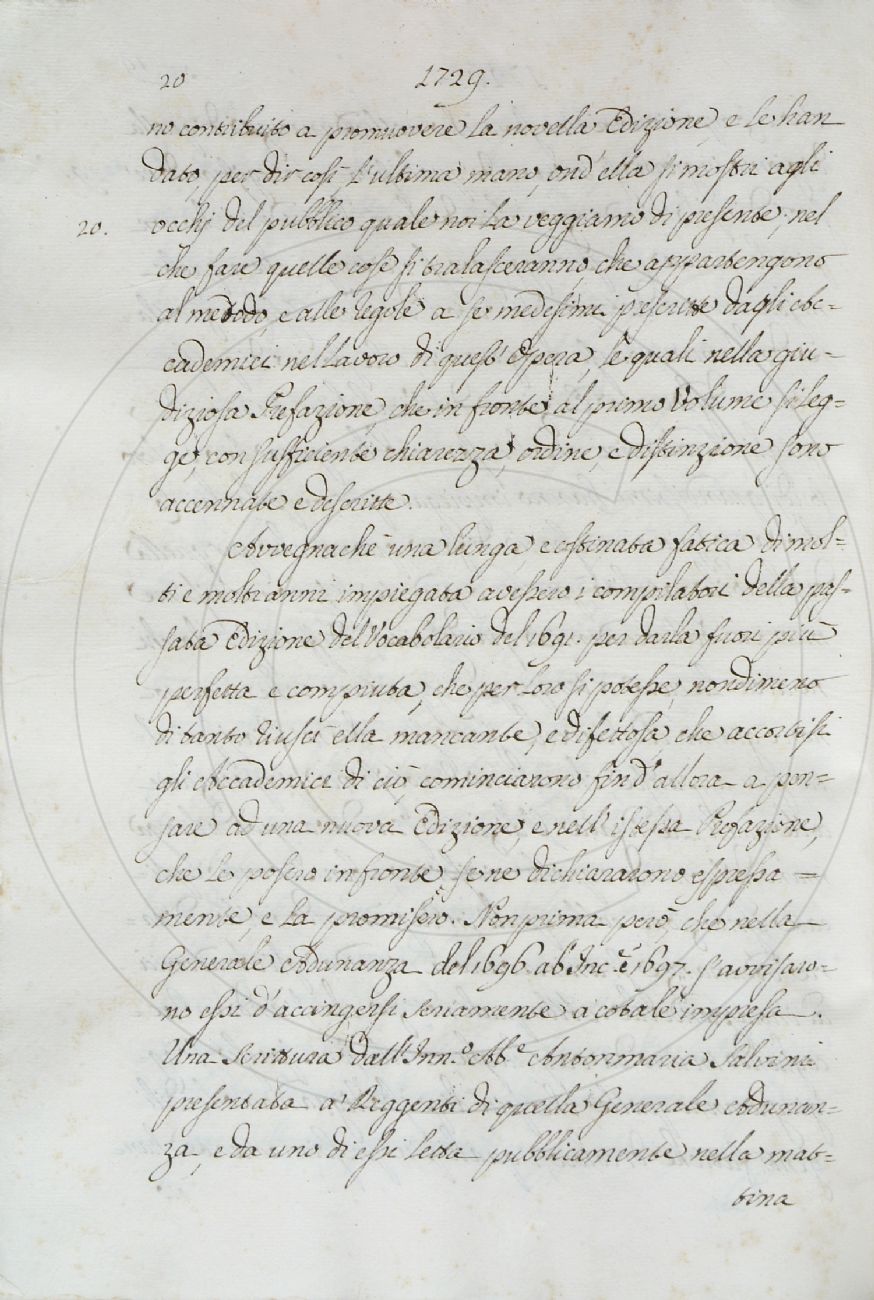 20 1729.
no contribuito a promuovere la novella Edizione, e le han
dato per dir così l'ultima mano, ond'ella si mostri agli
20. occhj del pubblico quale noi la veggiamo di presente; nel
che fare quelle cose si tralasceranno, che appartengono
al metodo, e alle regole a se medesimi prescritte dagli Ac-
cademici nel lavoro di quest'Opera, le quali nella giu-
diziosa Prefazione, che in fronte al primo Volume si leg-
ge, con sufficiente chiarezza, ordine, e distinzione sono
accennate e descritte.
Avvegnachè una lunga, e ostinata fatica di mol-
ti e molti anni impiegata avessero i compilatori della pas-
sata Edizione del Vocabolario del 1691. per darla fuori più
perfetta e compiuta, che per loro si potesse, nondimeno
di tanto riuscì ella mancante, e difettosa, che accortisi
gli Accademici di ciò, cominciarono fin d'allora a pen-
sare ad una nuova Edizione, e nell'istessa Prefazione,
che le posero in fronte, se ne dichiararono espressa-
mente, e la promisero. Non prima però, che nella
Generale Adunanza del 1696. ab Inc.e 1697. s'avvisaro-
no essi d'accingersi seriamente a cotale impresa.
Una scrittura dall'Inn.o Ab.e Antonmaria Salvini
presentata a' Reggenti di quella Generale Adunan-
za, e da uno di essi letta pubblicamente nella mat-
tina